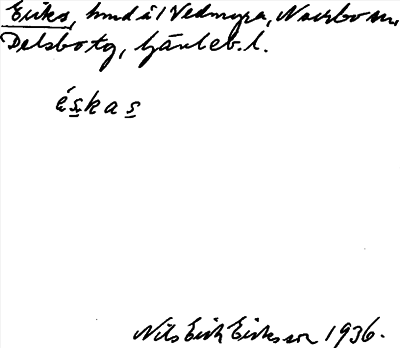 Eriks, hmd å 1 Vedmyra, Norrbo sn,
Delsbo tg, Gävleb. l.
éskas
Nils Erik Eriksson 1936.